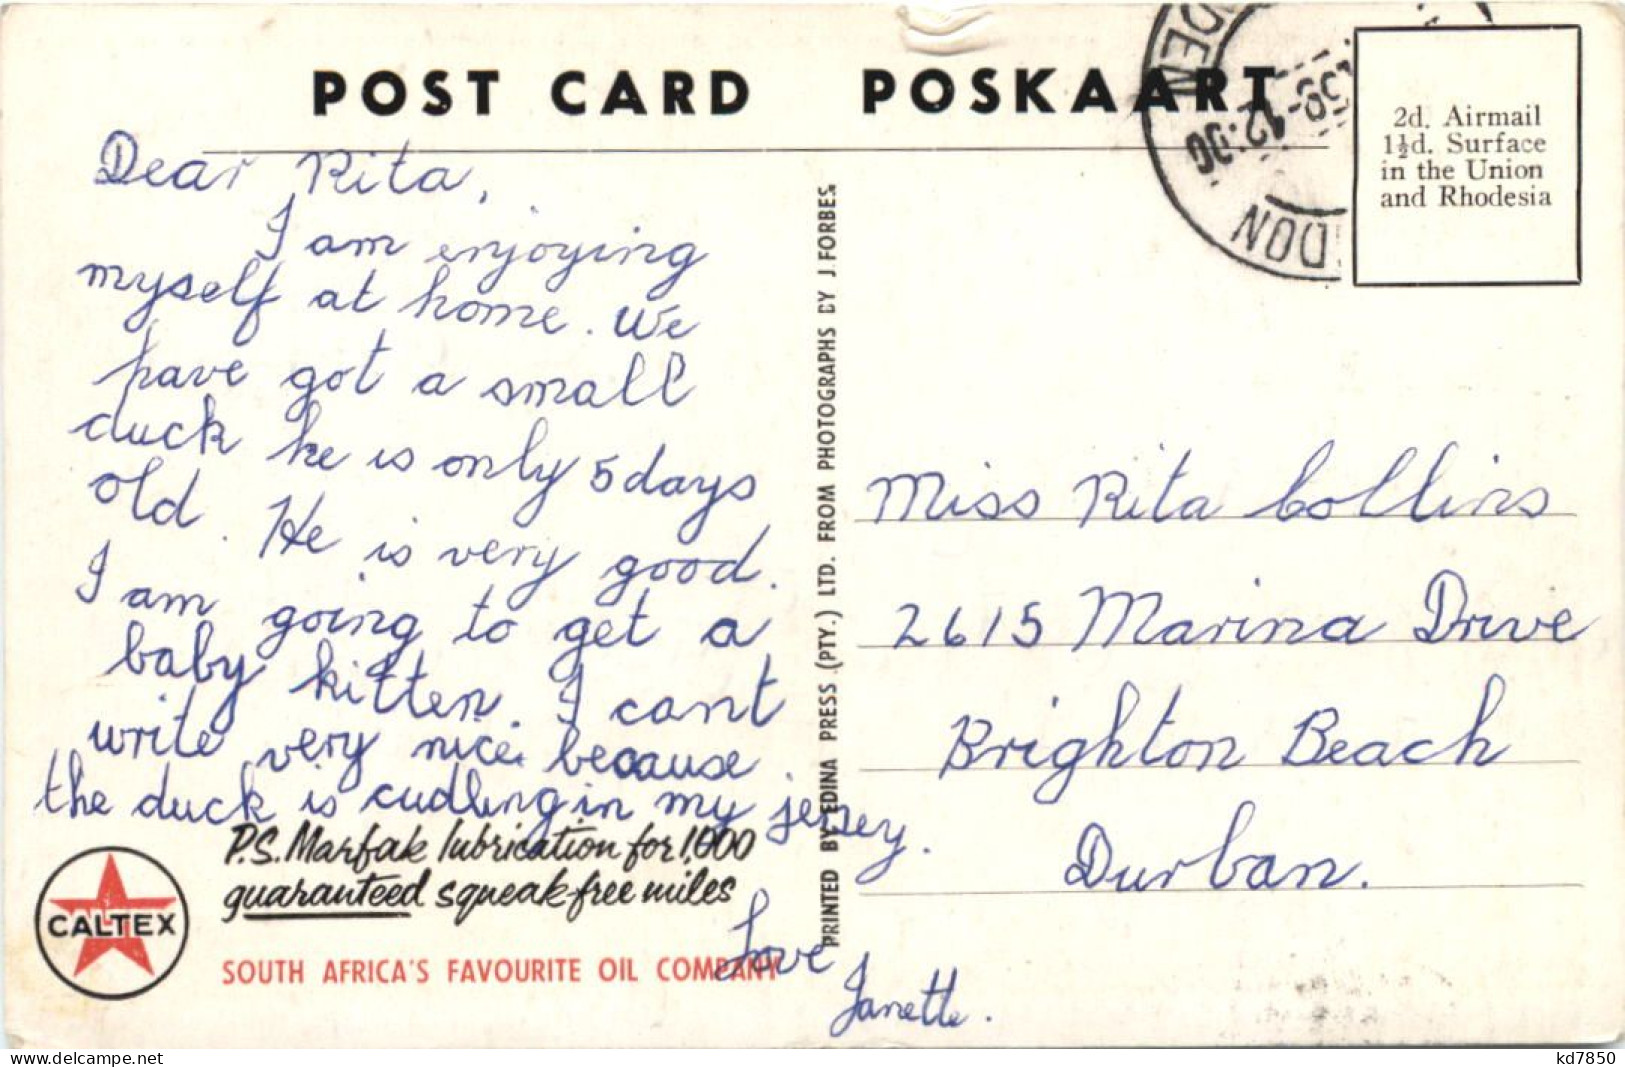 POST CARD POSKAART
DEN
12:00
DON
2d. Airmail
1½d. Surface
in the Union
and Rhodesia
Dear Rita,
I am enjoying
myself at home. We
have got a small
duck he is only 5 days
old. He is very good.
I am going to get a
baby kitten. I cant
write very nice because
the duck is cudling in my jersey.
Love
Janette.
P.S. Marfak lubrication for 1,000
guaranteed squeak-free miles
CALTEX
SOUTH AFRICA'S FAVOURITE OIL COMPANY
PRINTED BY EDINA PRESS (PTY.) LTD. FROM PHOTOGRAPHS BY J. FORBES.
Miss Rita Collins
2615 Marina Drive
Brighton Beach
Durban.
kd7850
www.delcampe.net